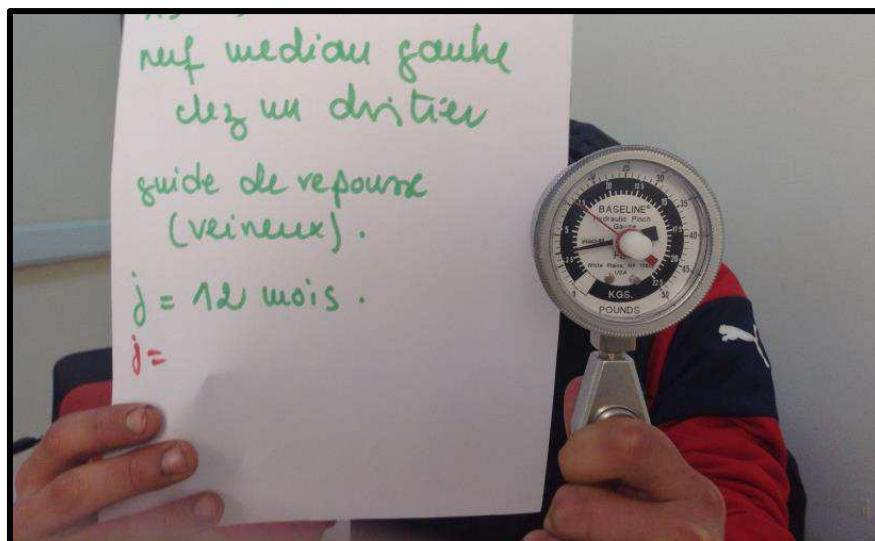 nerf median gauche
chez un droitier
guide de repousse
(veineux).
j = 12 mois.
j =
BASELINE®
Hydraulic Pinch
Gauge
White Plains, NY
USA
KGS.
POUNDS